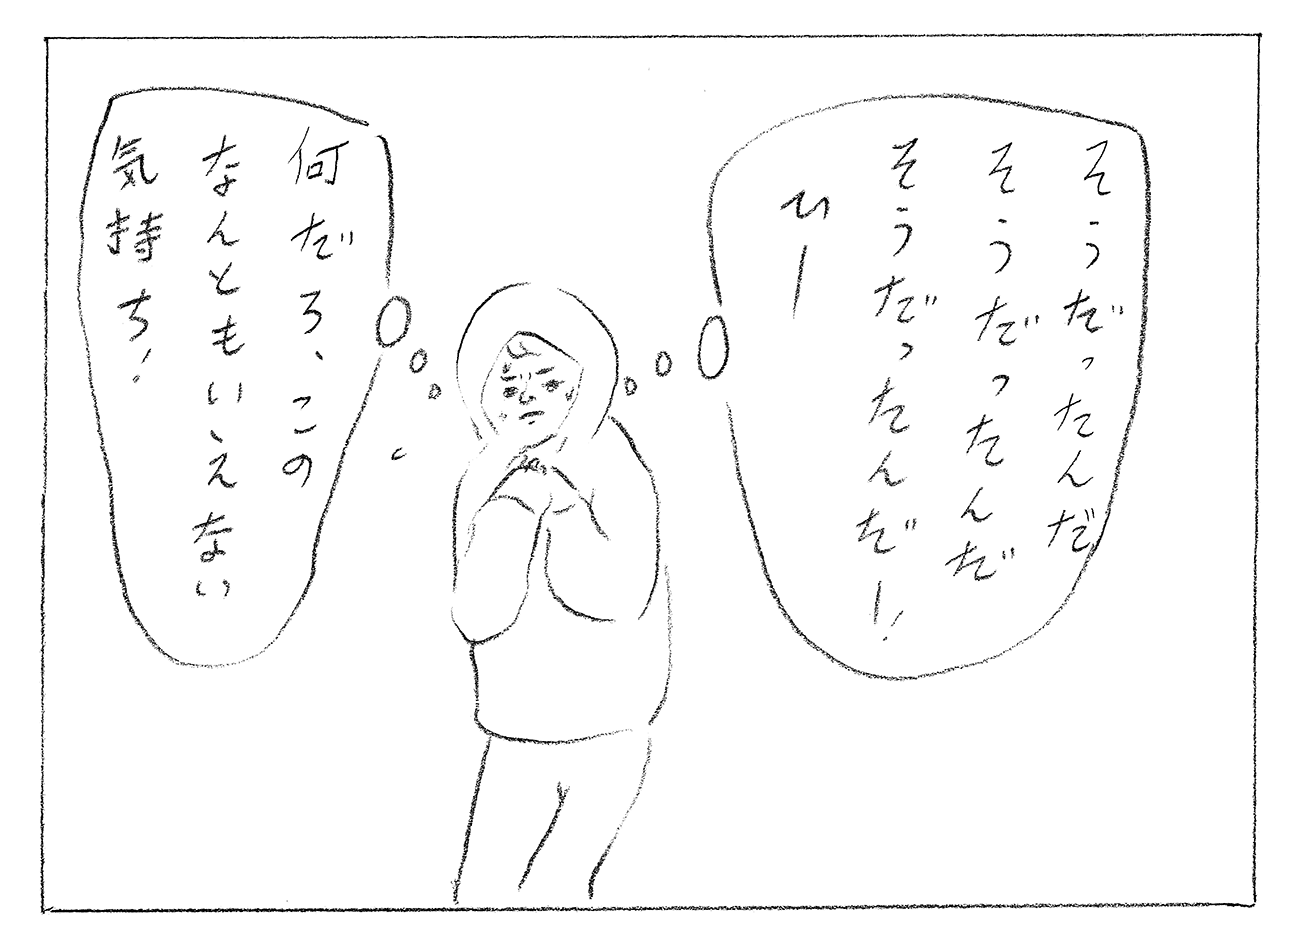 そうだったんだ
そうだったんだ
そうだったんだー!
ひー
何だろ、この
なんともいえない
気持ち!